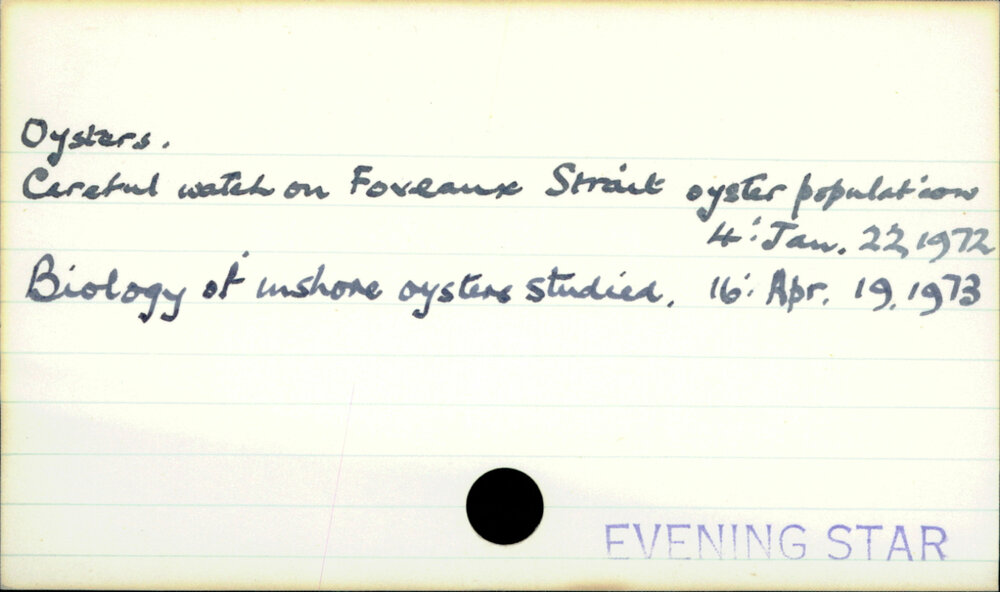 Oysters.
Careful watch on Foveaux Strait oyster population
4: Jan. 22, 1972
Biology of inshore oysters studied. 16: Apr. 19, 1973
EVENING STAR